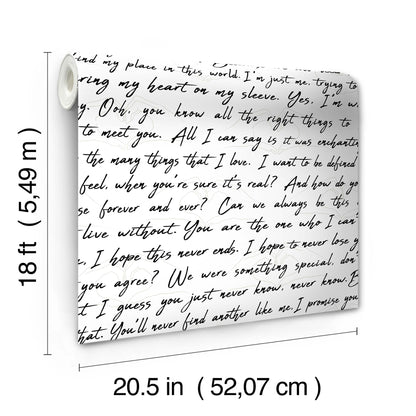 find my place in this world. I'm just me, trying to
ring my heart on my sleeve. Yes, I'm w
y. Ooh, you know all the right things to
to meet you. All I can say is it was enchantin
the many things that I love. I want to be defined
feel, when you're sure it's real? And how do yo
se forever and ever? Can we always be this
live without. You are the one who I can'
e. I hope this never ends. I hope to never lose y
you agree? We were something special, don'
t I guess you just never know, never know. B
hat. You'll never find another like me. I promise you
18 ft ( 5,49 m )
20.5 in ( 52,07 cm )